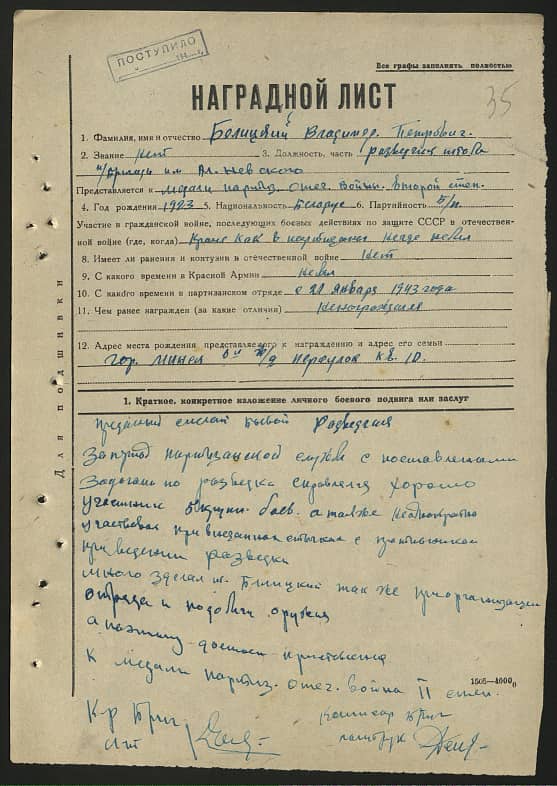 ПОСТУПИЛО
Все графы заполнять полностью
35
НАГРАДНОЙ ЛИСТ
1. Фамилия, имя и отчество Белицкий Владимир Петрович.
2. Звание нет 3. Должность, часть разведчик штаба
п/бригады им Ал. Невского
Представляется к медали партиз. отеч. войны второй степ.
4. Год рождения 1923 5. Национальность Беларус 6. Партийность б/п
Участие в гражданской войне, последующих боевых действиях по защите СССР в отечествен-
ной войне (где, когда) Кроме как в партизанах негде небыл
8. Имеет ли ранения и контузии в отечественной войне нет
9. С какого времени в Красной Армии небыл
10. С какого времени в партизанском отряде с 22 января 1943 года
11. Чем ранее награжден (за какие отличия) Ненагражался
12. Адрес места рождения представляемого к награждению и адрес его семьи
гор. Минск 5й ж/д переулок кв. 10.
Для подшивки
1. Краткое, конкретное изложение личного боевого подвига или заслуг
Преданный смелый боевой разведчик
За период партизанской службы с поставленами
Задачами по разведки справлялся хорошо
участник боев. а также неоднократно
участвовал при внезапных стычках с противником
при ведении разведки
много зделал т. Белицкий так же при организации
отряда и подобычи оружия
а поэтому достоен приставления
К медали партиз. отеч. война II степ.
1505—4000
К-р Бриг
Комисар Бриг
политрук